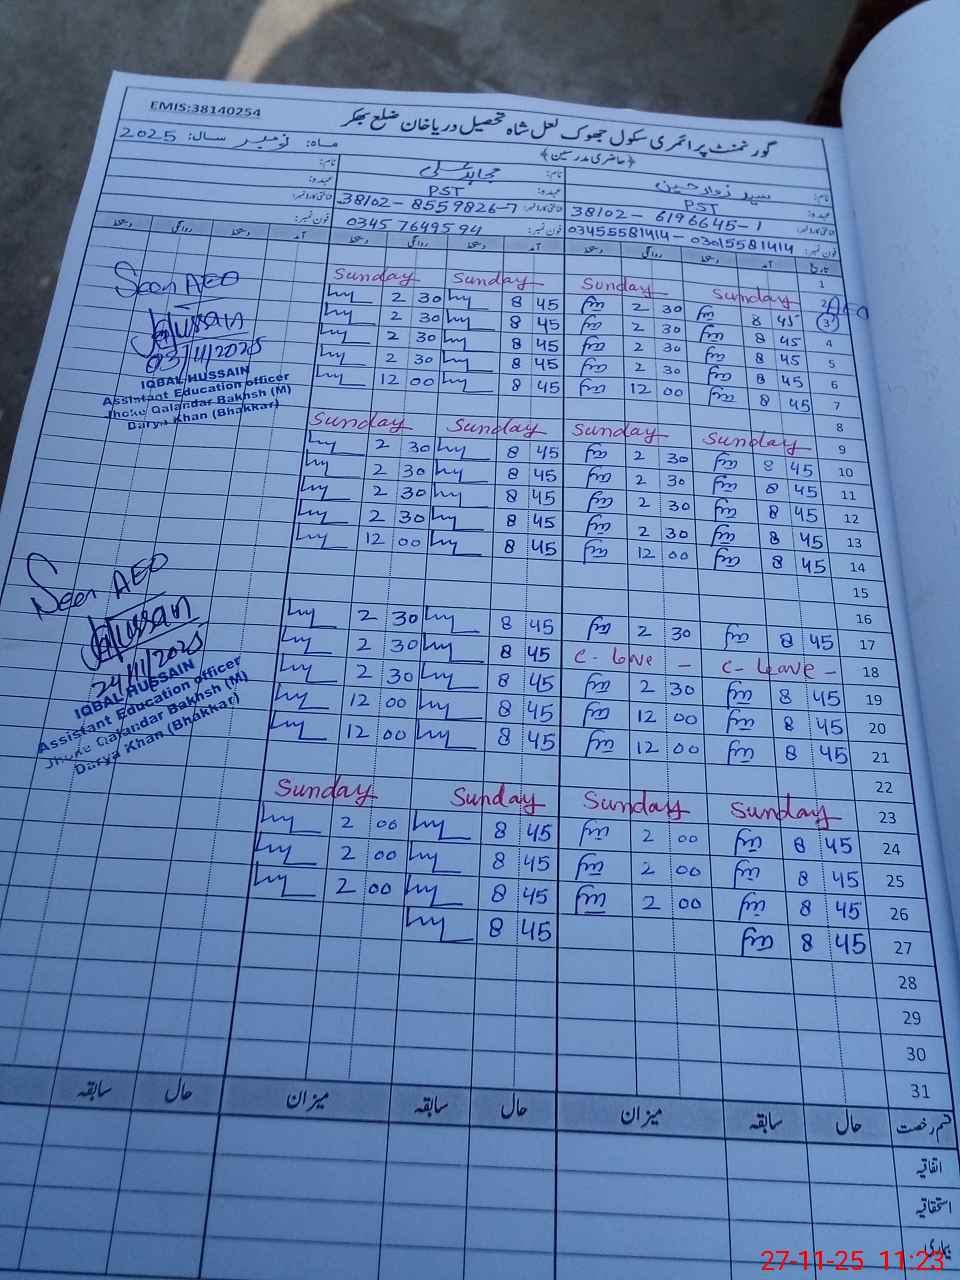 EMIS:38140254
گورنمنٹ پرائمری سکول جھوک لعل شاہ تحصیل دریاخان ضلع بھکر
﴿حاضری مدرسین﴾
ماہ: نومبر سال: 2025
نام: سید زوار حسین نام: نام:
عہدہ: PST عہدہ: PST عہدہ:
شناختی کارڈ نمبر: 38102-6196645-1 شناختی کارڈ نمبر: 38102-8559826-7
فون نمبر: 03455581414-03015581414 فون نمبر: 0345 7649594 فون نمبر:
تاریخ آمد دستخط روانگی دستخط آمد دستخط روانگی دستخط آمد دستخط روانگی دستخط
1
Sunday Sunday Sunday Sunday 2
2 30 8 45 2 30 8 45 3
2 30 8 45 2 30 8 45 4
2 30 8 45 2 30 8 45 5
2 30 8 45 2 30 8 45 6
12 00 8 45 12 00 8 45 7
8
Sunday Sunday Sunday Sunday 9
2 30 8 45 2 30 8 45 10
2 30 8 45 2 30 8 45 11
2 30 8 45 2 30 8 45 12
2 30 8 45 2 30 8 45 13
12 00 8 45 12 00 8 45 14
15
16
2 30 8 45 2 30 8 45 17
2 30 8 45 C-leave - C-leave - 18
2 30 8 45 2 30 8 45 19
12 00 8 45 12 00 8 45 20
12 00 8 45 12 00 8 45 21
22
Sunday Sunday Sunday Sunday 23
2 00 8 45 2 00 8 45 24
2 00 8 45 2 00 8 45 25
2 00 8 45 2 00 8 45 26
8 45 8 45 27
28
29
30
31
Seen AEO
03/11/2025
IQBAL HUSSAIN
Assistant Education officer
Jhoke Qalandar Bakhsh (M)
Darya Khan (Bhakkar)
Seen AEO
24/11/2025
IQBAL HUSSAIN
Assistant Education officer
Jhoke Qalandar Bakhsh (M)
Darya Khan (Bhakkar)
قسم رخصت حال سابقہ میزان حال سابقہ میزان حال سابقہ
اتفاقیہ
استحقاقیہ
بیماری
27-11-25 11:23